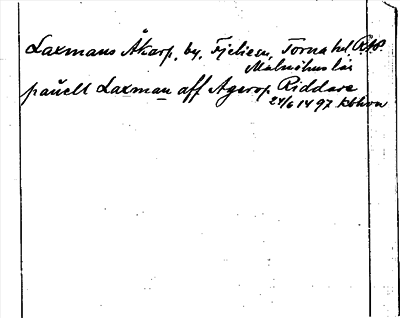 Laxmans Åkarp, by, Fjeliesn, Torna hd, RAP.
Malmöhus län
pauell Laxman aff Agerop Riddare
24/6 1497 Kbhvn